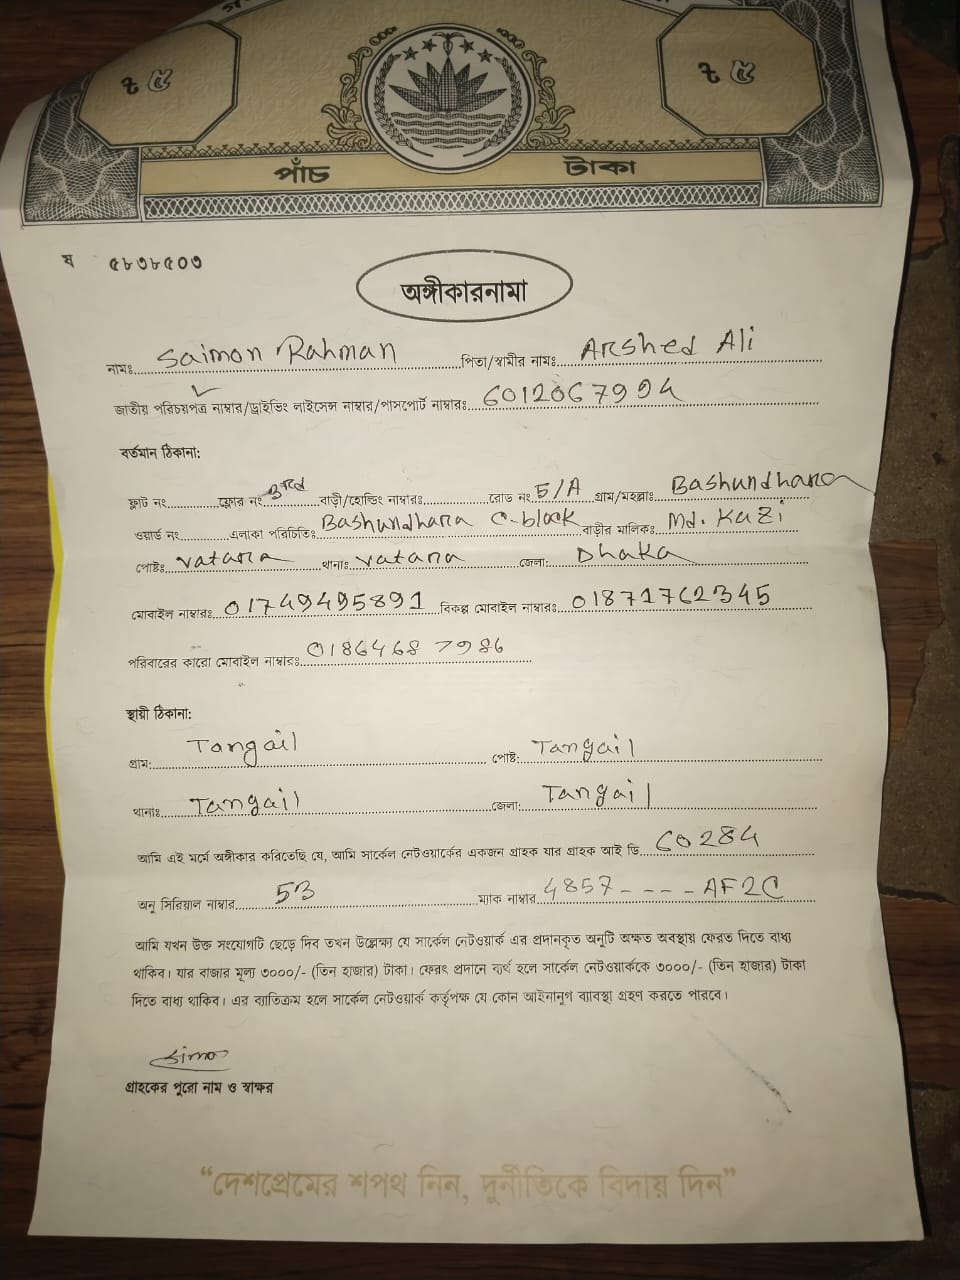 ৳ ৫ ৳ ৫
পাঁচ টাকা
ষ ৫৮৩৮৫০৩
অঙ্গীকারনামা
নামঃ Saimon Rahman পিতা/স্বামীর নামঃ Arshed Ali
জাতীয় পরিচয়পত্র নাম্বার/ড্রাইভিং লাইসেন্স নাম্বার/পাসপোর্ট নাম্বারঃ 6012067994
বর্তমান ঠিকানা:
ফ্লাট নং ফ্লোর নং 3rd বাড়ী/হোল্ডিং নাম্বারঃ রোড নং 5/A গ্রাম/মহল্লাঃ Bashundhara
ওয়ার্ড নং এলাকা পরিচিতিঃ Bashundhara C-block বাড়ীর মালিকঃ Md. Kazi
পোষ্টঃ vatara থানাঃ vatara জেলা: Dhaka
মোবাইল নাম্বারঃ 01749495891 বিকল্প মোবাইল নাম্বারঃ 01871762345
পরিবারের কারো মোবাইল নাম্বারঃ 01864687986
স্থায়ী ঠিকানা:
গ্রাম: Tangail পোষ্ট: Tangail
থানাঃ Tangail জেলা: Tangail
আমি এই মর্মে অঙ্গীকার করিতেছি যে, আমি সার্কেল নেটওয়ার্কের একজন গ্রাহক যার গ্রাহক আই ডি 60284
অনু সিরিয়াল নাম্বার 53 ম্যাক নাম্বার 4857----AF2C
আমি যখন উক্ত সংযোগটি ছেড়ে দিব তখন উল্লেক্ষ্য যে সার্কেল নেটওয়ার্ক এর প্রদানকৃত অনুটি অক্ষত অবস্থায় ফেরত দিতে বাধ্য
থাকিব। যার বাজার মূল্য ৩০০০/- (তিন হাজার) টাকা। ফেরৎ প্রদানে ব্যর্থ হলে সার্কেল নেটওয়ার্ককে ৩০০০/- (তিন হাজার) টাকা
দিতে বাধ্য থাকিব। এর ব্যাতিক্রম হলে সার্কেল নেটওয়ার্ক কর্তৃপক্ষ যে কোন আইনানুগ ব্যাবস্থা গ্রহণ করতে পারবে।
গ্রাহকের পুরো নাম ও স্বাক্ষর
“দেশপ্রেমের শপথ নিন, দুর্নীতিকে বিদায় দিন”